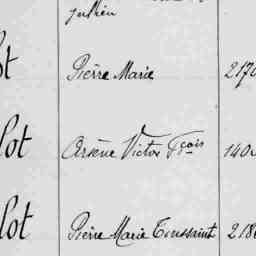 Pierre Marie
lot Arsène Victor Fçois 140
lot Pierre Marie Toussaint 218